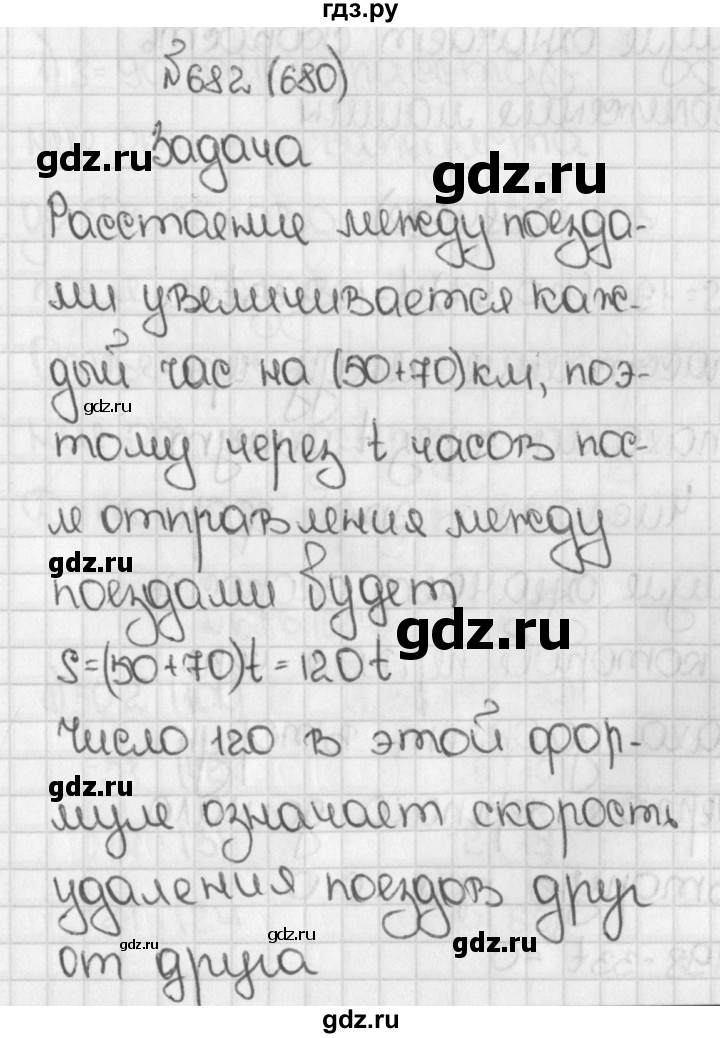 гдз.ру
№682 (680)
Задача
gdz.ru
gdz.ru
Расстаение между поезда-
ми увеличивается каж-
дый час на (50+70) км, поэ-
gdz.ru
тому через t часов пос-
ле отправления между
gdz.ru
поездами будет
gdz.ru
S=(50+70)t=120t
Число 120 в этой фор-
gdz.ru
муле означает скорость
удаления поездов друг
gdz.ru
gdz.ru
gdz.ru
от друга
gdz.ru